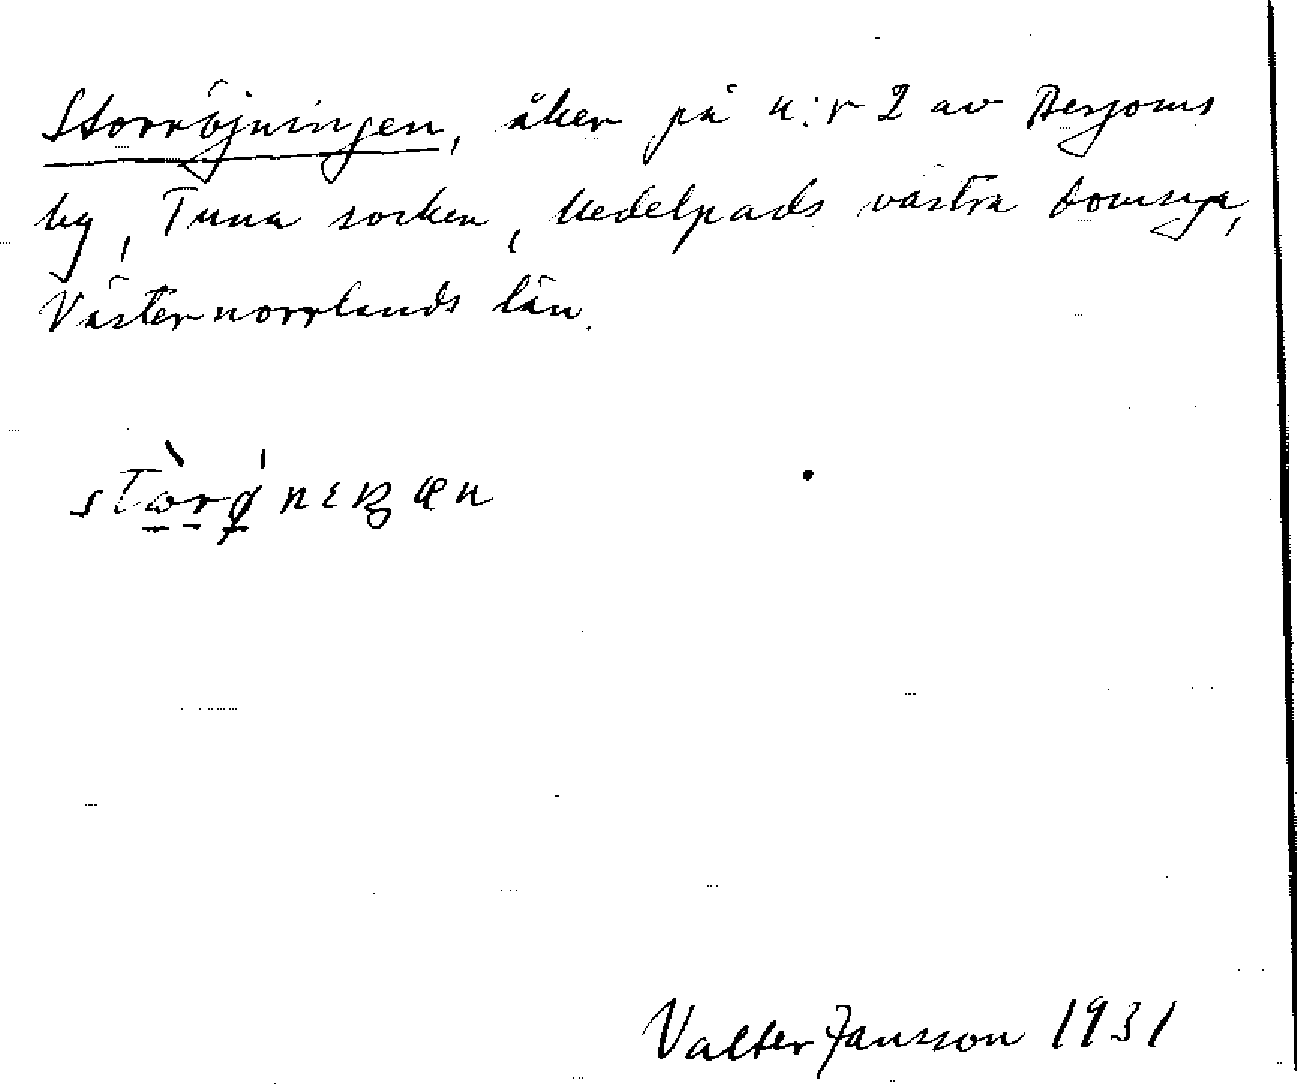 Storröjningen, åker på n:r 2 av Bergoms
by, Tuna socken, Medelpads västra domsaga,
Västernorrlands län.
Valter Jansson 1931